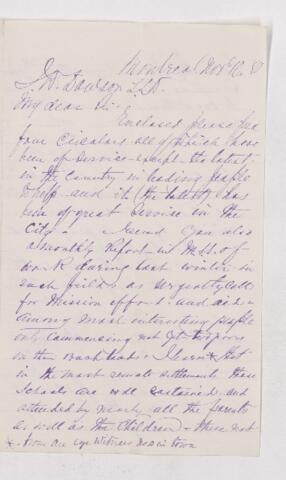 Montreal Nov 10. 
J. W. Dawson LLD.
My dear Sir -
Enclosed please find
four Circulars all of which have
been of service - except the latest -
in the Country in leading people
to help and it (the latest) has
been of great service in the
City - I send you also
a monthly Report in M.S.S. of
work during last winter in
such fields as urgently call
for Mission effort - and aid -
among most interesting people
only commencing not yet
on the
in the most remote settlements these
Schools are well sustained and
attended by nearly all the parents
as well as the Children - these not
from one eye witness now in town